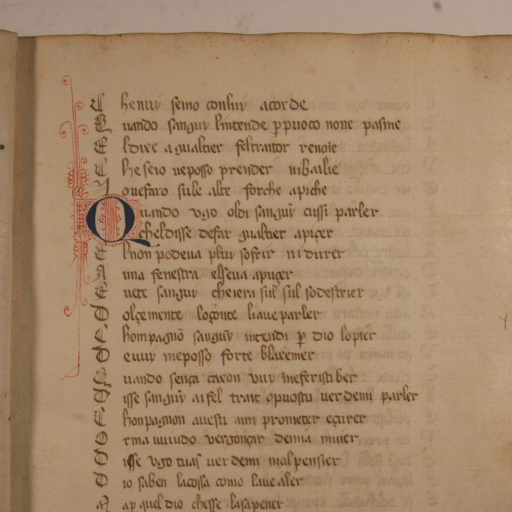 C he nui semo con lui acorde
Q uando sangui lintende p puoco none pasme
E l dixe a gualtier fel traitor renoie
C he se io ue posso prender ni bailie
I o ue faro su le alte forche apiche
Q uando ugo oldi sanguī cussi parler
Q che l disse de far gualtier apiçer
E l non podeua plui sofrir ni durer
A una fenestra el se ua apuçer
V ete sangui che iera sul sodestrier
D olçemente lo çonte li aue parler
C honpagnō sanguī intendi p dio lo pier
E uui me posso forte blasemer
Q uando sença caxon uui me feristi ber
D isse sanguī ai fel trait opuosta uer de mi parler
C honpagnon auesti ami prometer
uergonçar denia muier
D isse ugo tuas uer de mi mal pensier
D io saben la cossa como la ue aler
p quel dio che se lasa pener